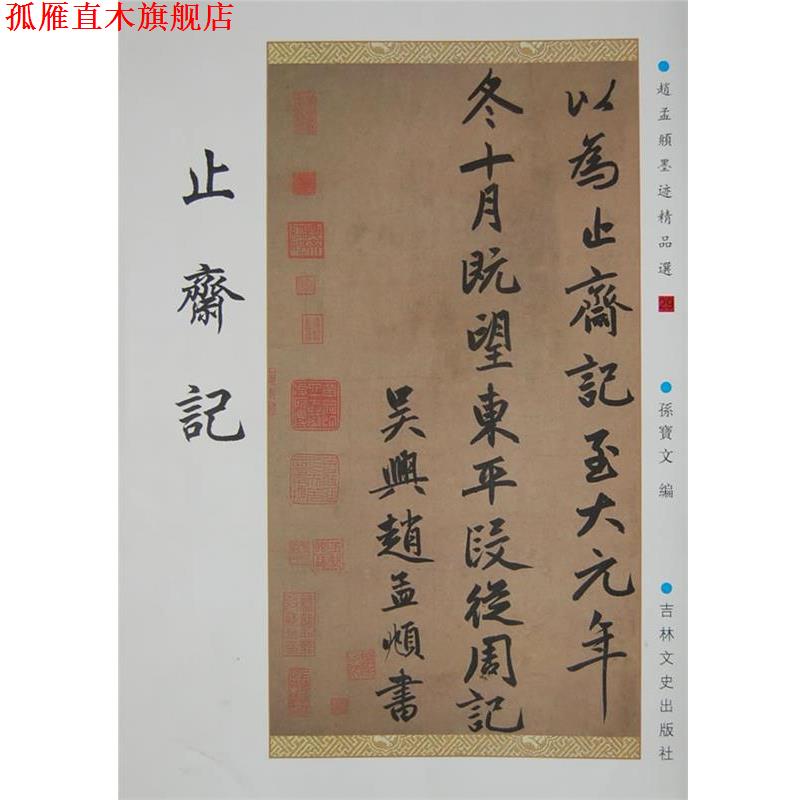 孤雁直木旗舰店
趙孟頫墨迹精品選 29
孫寶文 編
吉林文史出版社
以為止齋記至大元年
冬十月既望東平段從周記
吴興趙孟頫書
止齋記